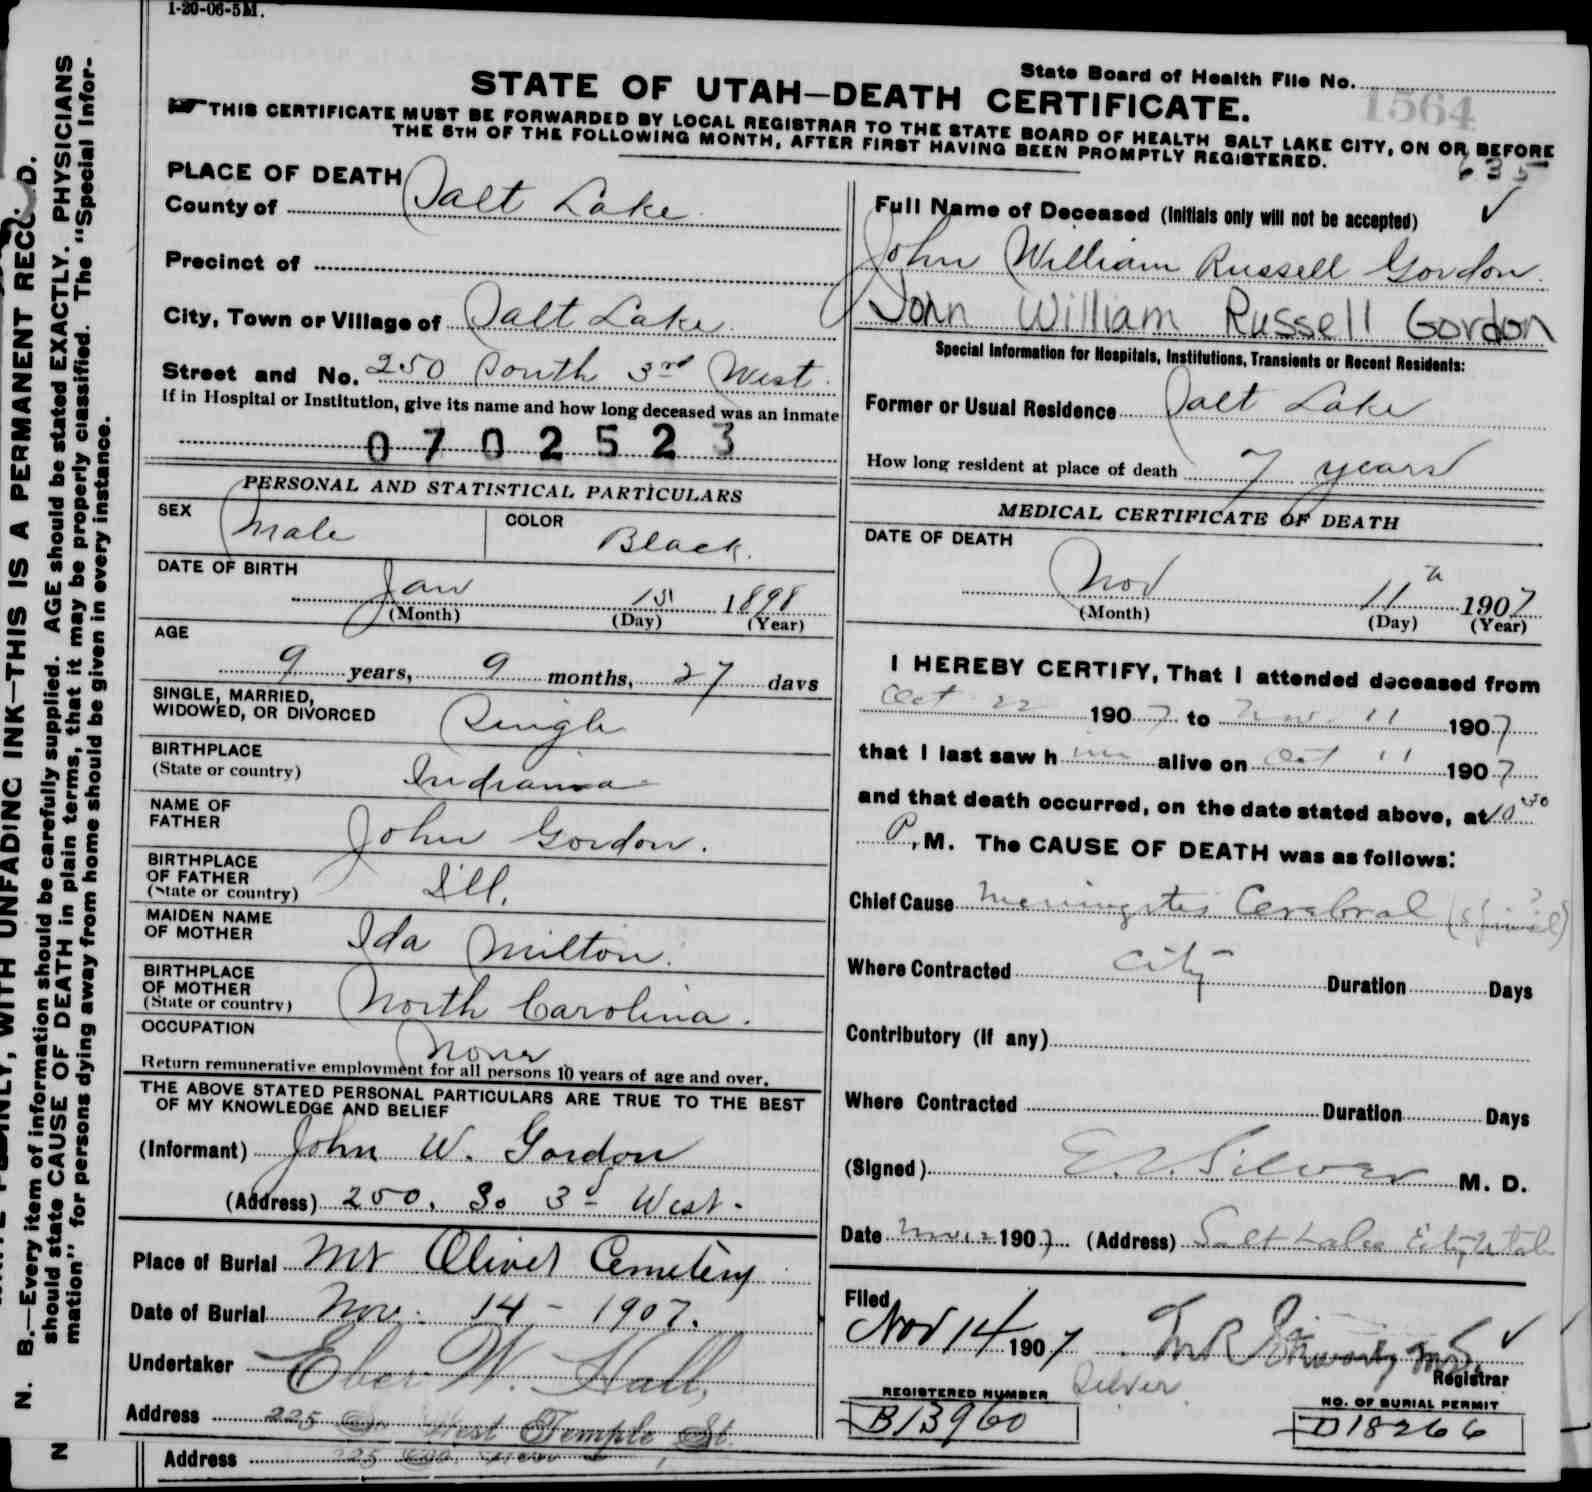 1-20-06-5M.
State Board of Health File No.
1564
STATE OF UTAH—DEATH CERTIFICATE.
THIS CERTIFICATE MUST BE FORWARDED BY LOCAL REGISTRAR TO THE STATE BOARD OF HEALTH SALT LAKE CITY, ON OR BEFORE
THE 5TH OF THE FOLLOWING MONTH, AFTER FIRST HAVING BEEN PROMPTLY REGISTERED.
635
N. B.—Every item of information should be carefully supplied. AGE should be stated EXACTLY. PHYSICIANS
should state CAUSE OF DEATH in plain terms, that it may be properly classified. The "Special Infor-
mation" for persons dying away from home should be given in every instance.
WITH UNFADING INK—THIS IS A PERMANENT RECORD.
PLACE OF DEATH
County of Salt Lake
Precinct of
City, Town or Village of Salt Lake
Street and No. 250 South 3rd West.
If in Hospital or Institution, give its name and how long deceased was an inmate
0702523
PERSONAL AND STATISTICAL PARTICULARS
SEX Male COLOR Black.
DATE OF BIRTH
Jan 1st 1898
(Month) (Day) (Year)
AGE
9 years, 9 months, 27 days
SINGLE, MARRIED,
WIDOWED, OR DIVORCED Single
BIRTHPLACE
(State or country) Indiana
NAME OF
FATHER John Gordon.
BIRTHPLACE
OF FATHER
(State or country) Ill.
MAIDEN NAME
OF MOTHER Ida Milton.
BIRTHPLACE
OF MOTHER
(State or country) North Carolina.
OCCUPATION None
Return remunerative employment for all persons 10 years of age and over.
THE ABOVE STATED PERSONAL PARTICULARS ARE TRUE TO THE BEST
OF MY KNOWLEDGE AND BELIEF
(Informant) John W. Gordon
(Address) 250. So 3d West.
Place of Burial Mt Olivet Cemetery
Date of Burial Nov. 14 - 1907.
Undertaker Eber W. Hall,
Address 225 So. West Temple St.
Address
Full Name of Deceased (Initials only will not be accepted) ✓
John William Russell Gordon.
John William Russell Gordon
Special Information for Hospitals, Institutions, Transients or Recent Residents:
Former or Usual Residence Salt Lake
How long resident at place of death 7 years
MEDICAL CERTIFICATE OF DEATH
DATE OF DEATH
Nov 11th 1907
(Month) (Day) (Year)
I HEREBY CERTIFY, That I attended deceased from
Oct 22 1907 to Nov. 11 1907
that I last saw him alive on Oct 11 1907
and that death occurred, on the date stated above, at 10
P.M. The CAUSE OF DEATH was as follows:
Chief Cause Meningitis Cerebral (Spinal)
Where Contracted City Duration Days
Contributory (if any)
Where Contracted Duration Days
(Signed) E. V. Silver M. D.
Date Nov 12 1907 (Address) Salt Lake City Utah
Filed
Nov 14 1907
Registrar
REGISTERED NUMBER Silver
B13960
NO. OF BURIAL PERMIT
D18266